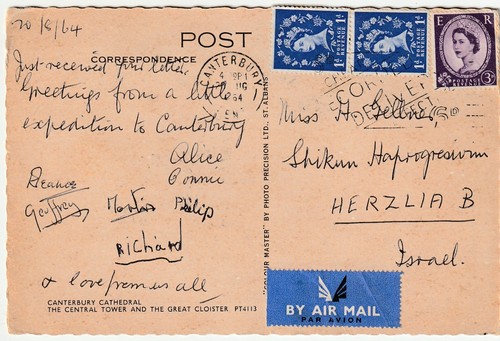 20/8/64
POST
CORRESPONDENCE
Just received your letter.
Greetings from a little
expedition to Canterbury
Alice
Connie
Geoffrey
Martin Philip
Richard
& love from us all
CANTERBURY CATHEDRAL
THE CENTRAL TOWER AND THE GREAT CLOISTER PT4113
"COLOUR MASTER" BY PHOTO PRECISION LTD., ST. ALBANS
CANTERBURY
64
1D
POSTAGE REVENUE
1D
POSTAGE REVENUE
E R
POSTAGE REVENUE
3D
Miss H. Gellner,
Shikun Haprogresivim
HERZLIA B
Israel.
BY AIR MAIL
PAR AVION